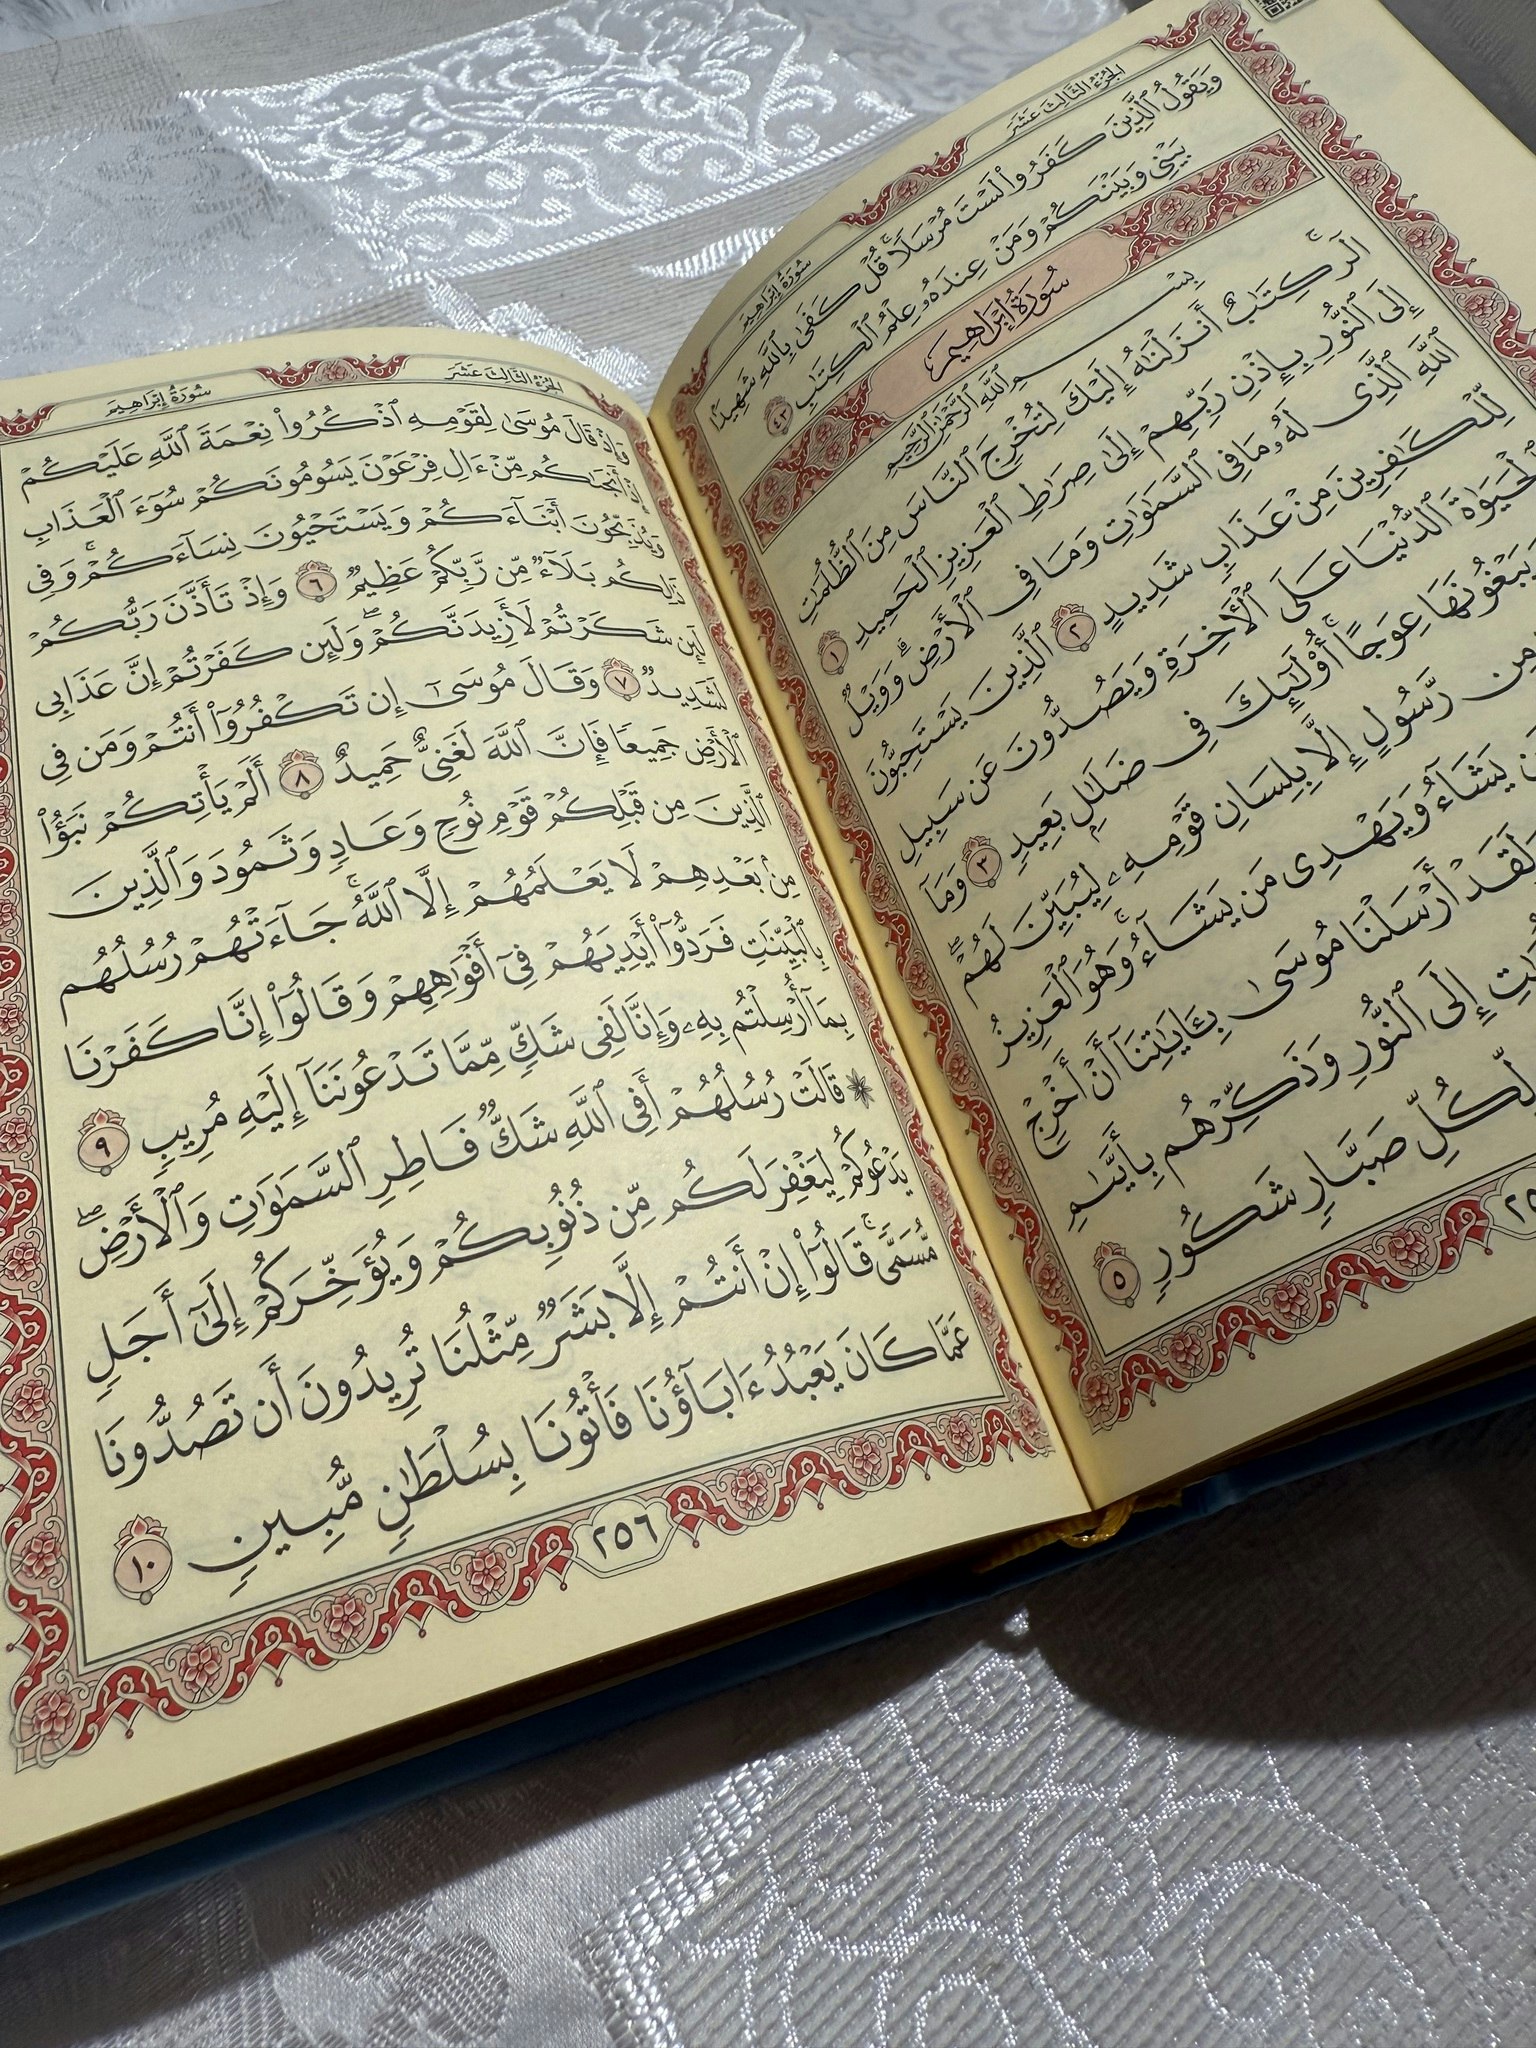 الجُزْءُ الثَّالِثَ عَشَرَ
سُورَةُ إِبْرَاهِيمَ
وَيَقُولُ ٱلَّذِينَ كَفَرُوا۟ لَسْتَ مُرْسَلًا ۚ قُلْ كَفَىٰ بِٱللَّهِ شَهِيدًۢا
بَيْنِى وَبَيْنَكُمْ وَمَنْ عِندَهُۥ عِلْمُ ٱلْكِتَـٰبِ ٤٣
سُورَةُ إِبْرَاهِيمَ
بِسْمِ ٱللَّهِ ٱلرَّحْمَـٰنِ ٱلرَّحِيمِ
الٓر ۚ كِتَـٰبٌ أَنزَلْنَـٰهُ إِلَيْكَ لِتُخْرِجَ ٱلنَّاسَ مِنَ ٱلظُّلُمَـٰتِ
إِلَى ٱلنُّورِ بِإِذْنِ رَبِّهِمْ إِلَىٰ صِرَٰطِ ٱلْعَزِيزِ ٱلْحَمِيدِ ١
ٱللَّهِ ٱلَّذِى لَهُۥ مَا فِى ٱلسَّمَـٰوَٰتِ وَمَا فِى ٱلْأَرْضِ ۗ وَوَيْلٌ
لِّلْكَـٰفِرِينَ مِنْ عَذَابٍ شَدِيدٍ ٢ ٱلَّذِينَ يَسْتَحِبُّونَ
ٱلْحَيَوٰةَ ٱلدُّنْيَا عَلَى ٱلْـَٔاخِرَةِ وَيَصُدُّونَ عَن سَبِيلِ
وَيَبْغُونَهَا عِوَجًا ۚ أُو۟لَـٰٓئِكَ فِى ضَلَـٰلٍۭ بَعِيدٍ ٣ وَمَآ
مِن رَّسُولٍ إِلَّا بِلِسَانِ قَوْمِهِۦ لِيُبَيِّنَ لَهُمْ ۖ
مَن يَشَآءُ وَيَهْدِى مَن يَشَآءُ ۚ وَهُوَ ٱلْعَزِيزُ
وَلَقَدْ أَرْسَلْنَا مُوسَىٰ بِـَٔايَـٰتِنَآ أَنْ أَخْرِجْ
إِلَى ٱلنُّورِ وَذَكِّرْهُم بِأَيَّىٰمِ
لِّكُلِّ صَبَّارٍ شَكُورٍ ٥
الجُزْءُ الثَّالِثَ عَشَرَ
سُورَةُ إِبْرَاهِيمَ
وَإِذْ قَالَ مُوسَىٰ لِقَوْمِهِ ٱذْكُرُوا۟ نِعْمَةَ ٱللَّهِ عَلَيْكُمْ
إِذْ أَنجَىٰكُم مِّنْ ءَالِ فِرْعَوْنَ يَسُومُونَكُمْ سُوٓءَ ٱلْعَذَابِ
وَيُذَبِّحُونَ أَبْنَآءَكُمْ وَيَسْتَحْيُونَ نِسَآءَكُمْ ۚ وَفِى
ذَٰلِكُم بَلَآءٌ مِّن رَّبِّكُمْ عَظِيمٌ ٦ وَإِذْ تَأَذَّنَ رَبُّكُمْ
لَئِن شَكَرْتُمْ لَأَزِيدَنَّكُمْ ۖ وَلَئِن كَفَرْتُمْ إِنَّ عَذَابِى
لَشَدِيدٌ ٧ وَقَالَ مُوسَىٰٓ إِن تَكْفُرُوٓا۟ أَنتُمْ وَمَن فِى
ٱلْأَرْضِ جَمِيعًا فَإِنَّ ٱللَّهَ لَغَنِىٌّ حَمِيدٌ ٨ أَلَمْ يَأْتِكُمْ نَبَؤُا۟
ٱلَّذِينَ مِن قَبْلِكُمْ قَوْمِ نُوحٍ وَعَادٍ وَثَمُودَ ۛ وَٱلَّذِينَ
مِنۢ بَعْدِهِمْ ۛ لَا يَعْلَمُهُمْ إِلَّا ٱللَّهُ ۚ جَآءَتْهُمْ رُسُلُهُم
بِٱلْبَيِّنَـٰتِ فَرَدُّوٓا۟ أَيْدِيَهُمْ فِىٓ أَفْوَٰهِهِمْ وَقَالُوٓا۟ إِنَّا كَفَرْنَا
بِمَآ أُرْسِلْتُم بِهِۦ وَإِنَّا لَفِى شَكٍّ مِّمَّا تَدْعُونَنَآ إِلَيْهِ مُرِيبٍ ٩
۞ قَالَتْ رُسُلُهُمْ أَفِى ٱللَّهِ شَكٌّ فَاطِرِ ٱلسَّمَـٰوَٰتِ وَٱلْأَرْضِ ۖ
يَدْعُوكُمْ لِيَغْفِرَ لَكُم مِّن ذُنُوبِكُمْ وَيُؤَخِّرَكُمْ إِلَىٰٓ أَجَلٍ
مُّسَمًّى ۚ قَالُوٓا۟ إِنْ أَنتُمْ إِلَّا بَشَرٌ مِّثْلُنَا تُرِيدُونَ أَن تَصُدُّونَا
عَمَّا كَانَ يَعْبُدُ ءَابَآؤُنَا فَأْتُونَا بِسُلْطَـٰنٍ مُّبِينٍ ١٠
٢٥٦